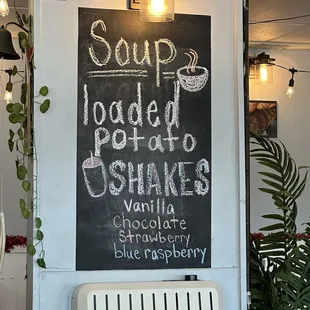 Soup
loaded
potato
SHAKES
Vanilla
Chocolate
Strawberry
blue raspberry